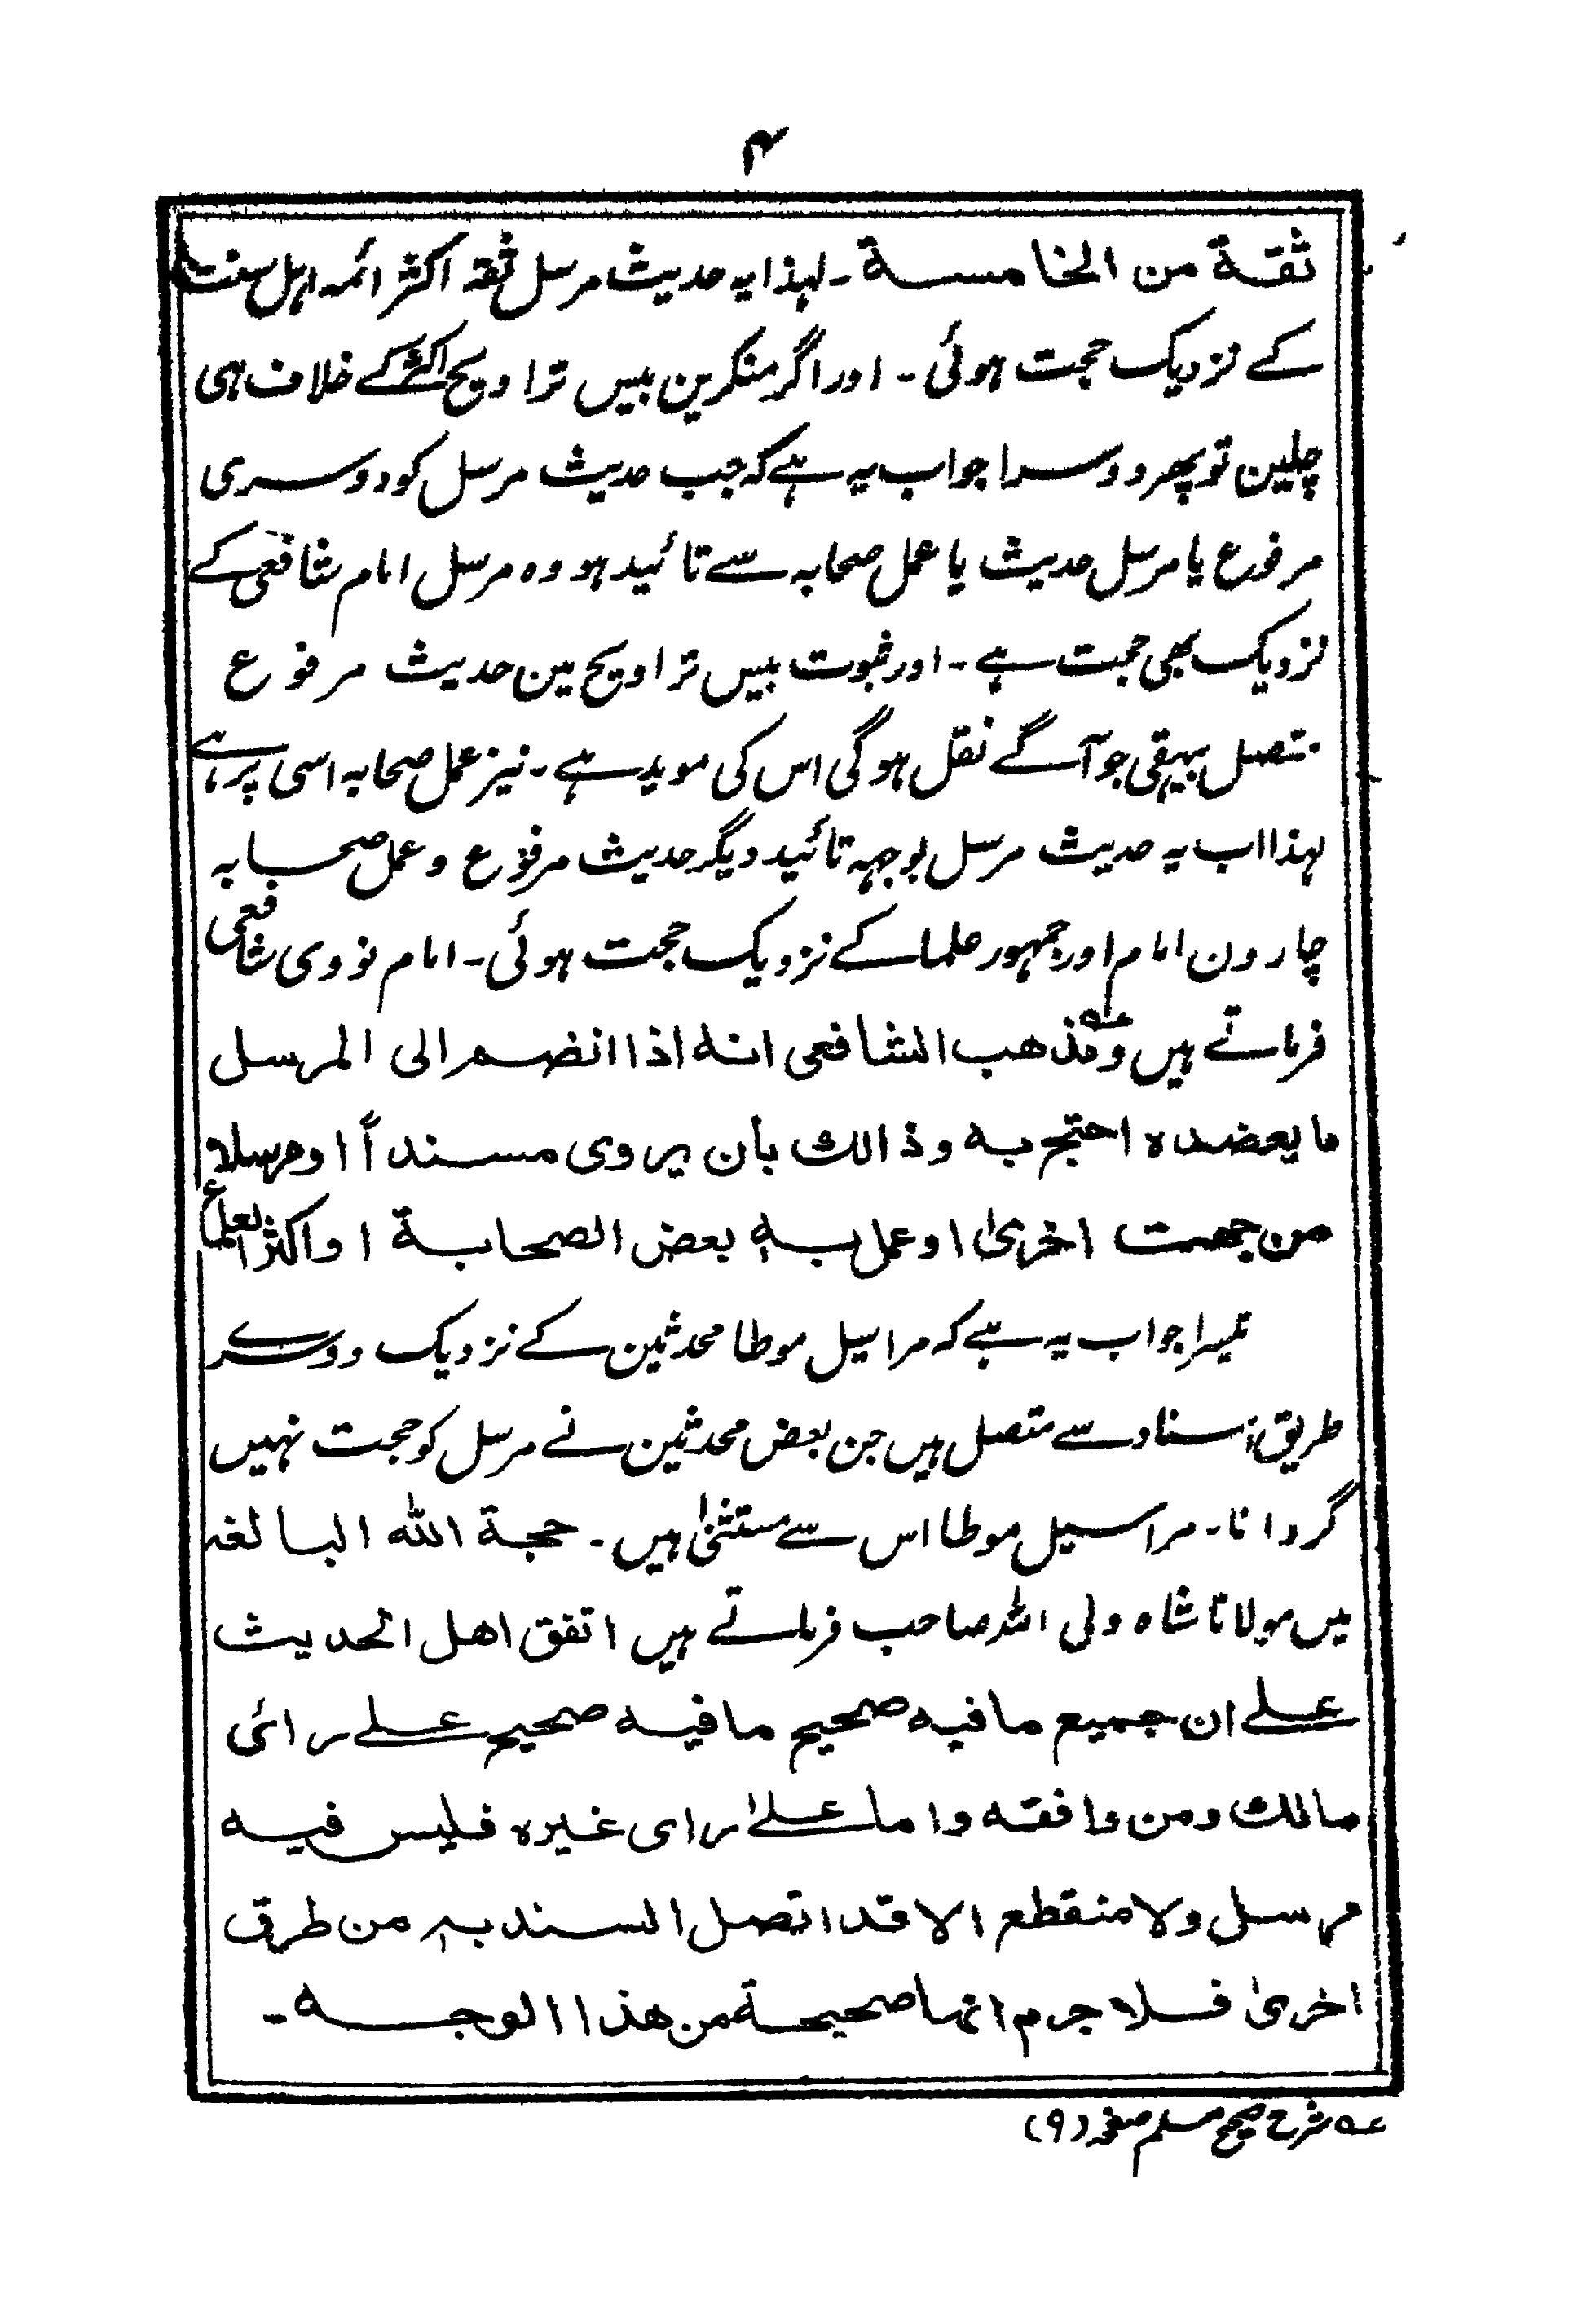 ۴
ثقة من الخامسة ۔ لہذا یہ حدیث مرسل ثقہ اکثر ائمہ اہل سنت
کے نزدیک حجت ہوئی ۔ اور اگر منکرین بیس تراویح اکثر کے خلاف ہی
چلین تو پھر دوسرا جواب یہ ہے کہ جب حدیث مرسل کو دوسری
مرفوع یا مرسل حدیث یا عمل صحابہ سے تائید ہو وہ مرسل امام شافعی کے
نزدیک بھی حجت ہے ۔ اور ثبوت بیس تراویح مین حدیث مرفوع
متصل بیہقی جو آگے نقل ہوگی اس کی موید ہے ۔ نیز عمل صحابہ اسی پر ہے،
لہذا اب یہ حدیث مرسل بوجہہ تائید دیگر حدیث مرفوع و عمل صحابہ
چارون امام اور جمہور علما کے نزدیک حجت ہوئی ۔ امام نووی شافعی
فرماتے ہیں ومذهب الشافعی انه اذا انضم الی المرسل
ما یعضده احتج به وذالك بأن یروی مسنداً او مرسلا
من جهت اخریٰ او عمل به بعض الصحابة او اکثر العلماء
تیسرا جواب یہ ہے کہ مراسیل موطا محدثین کے نزدیک دوسرے
طریق اسناد سے متصل ہیں جن بعض محدثین نے مرسل کو حجت نہیں
گردانا ۔ مراسیل موطا اس سے مستثنیٰ ہیں ۔ حجة الله البالغہ
میں مولانا شاہ ولی اللہ صاحب فرماتے ہیں اتفق اهل الحدیث
علے ان جمیع ما فیه صحیح ما فیه صحیح علے رائی
مالك ومن وافقه واما علےٰ رای غیره فلیس فیه
مرسل ولا منقطع الا قد اتصل السند به من طرق
اخریٰ فلا جرم انها صحیحة من هذا الوجه ۔
عه شرح صحیح مسلم صفحہ (۹)